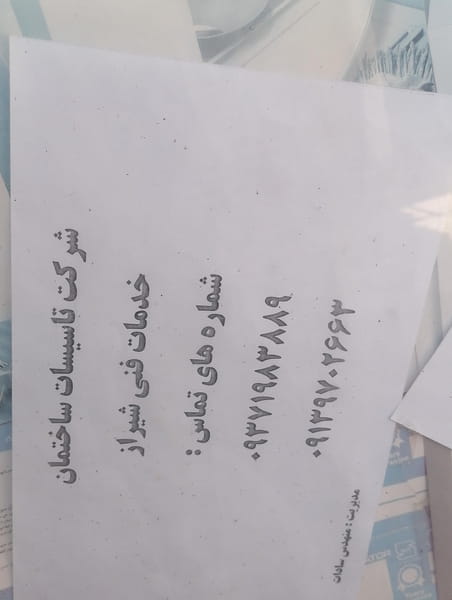 شرکت تاسیسات ساختمان
خدمات فنی شیراز
شماره های تماس :
۰۹۳۷۱۹۸۳۸۸۹
۰۹۱۳۹۷۰۲۶۶۳
مدیریت : مهندس سادات